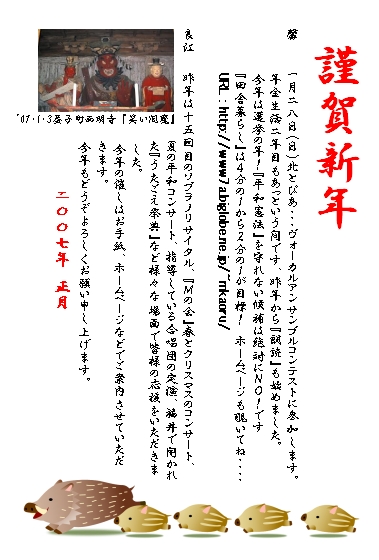 謹賀新年
馨
一月二八日(日)北とぴあ・・・ヴォーカルアンサンブルコンテストに参加します。
年金生活二年目もあっという間です。昨年から『朗読』も始めました。
今年は選挙の年!『平和憲法』を守れない候補は絶対にNO!です
『田舎暮らし』は4分の1から2分の1が目標! ホームページも覗いてね・・・・
URL:http://www7a.biglobe.ne.jp/~mkaoru/
良江
昨年は十五回目のソプラノリサイタル、『Mの会』春とクリスマスのコンサート、
夏の平和コンサート、指導している合唱団の定演、福井で開かれ
た『うたごえ祭典』など様々な場面で皆様の応援をいただきま
した。
今年の催しはお手紙、ホームページなどでご案内させていただ
きます。
今年もどうぞよろしくお願い申し上げます。
二〇〇七年 正月
'07・1・3益子町西明寺『笑い閻魔』